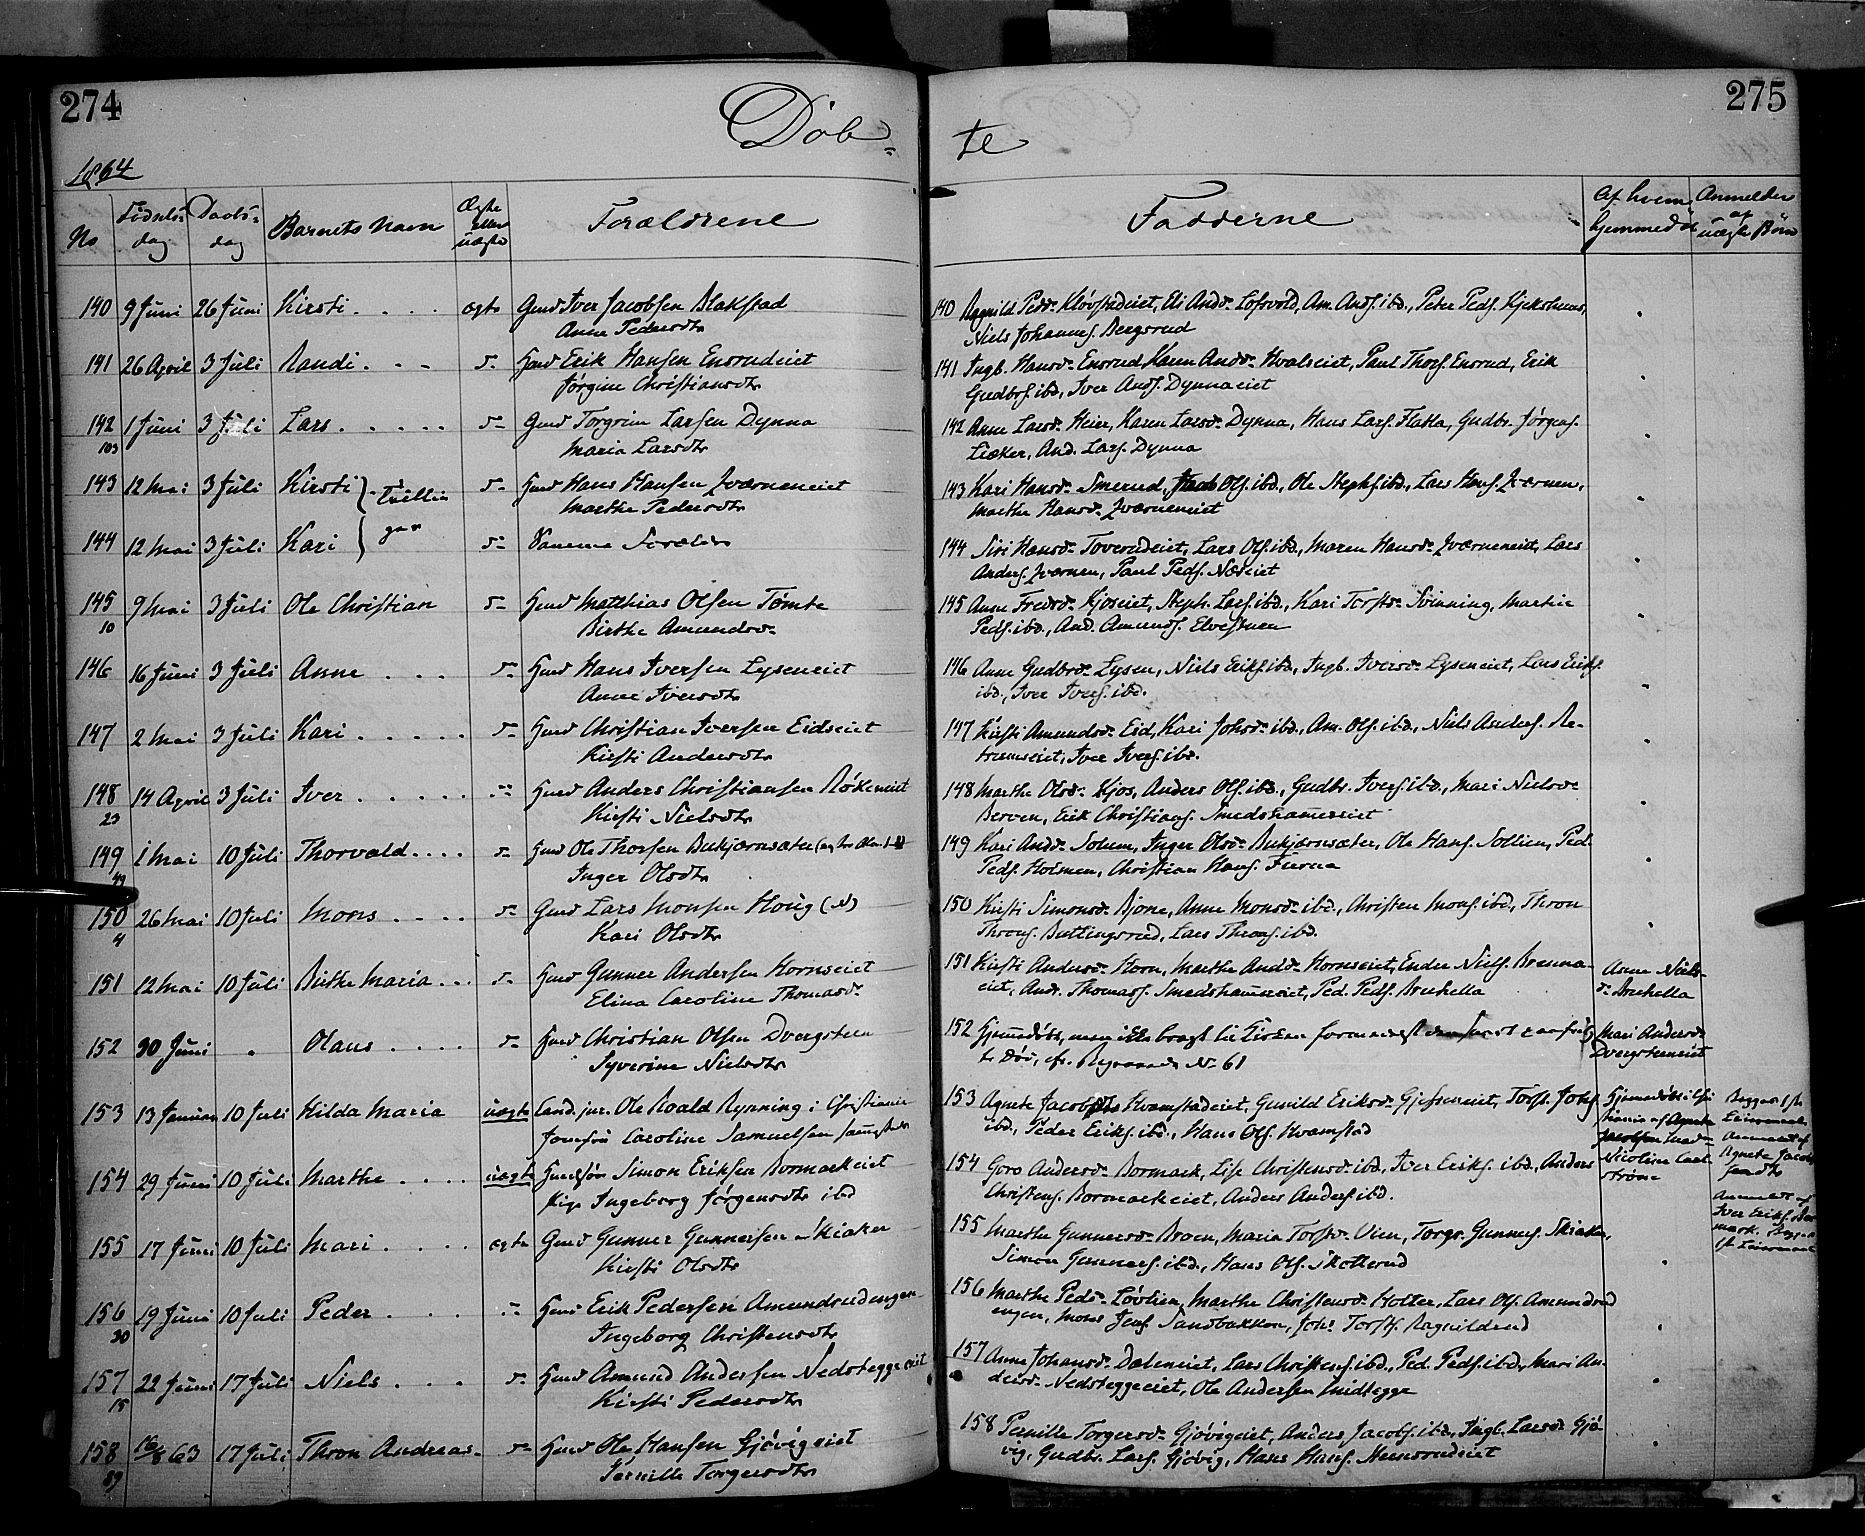 274
Døb-
1864
No
Fødsels-
dag
Daabs-
dag
Barnets Navn
Ægte
eller
uægte
Forældrene
140 9 Juni 26 Juni Kirsti . . . . ægte Gmd Iver Jacobsen Blakstad
Anne Pedersdtr
141 26 April 3 Juli Randi . . - D- Hmd Erik Hansen Ensrudeiet
Jørgine Christiansdtr
142 1 Juni 3 Juli Lars . . . . . D- Gmd Torgrim Larsen Dynna
103 Maria Larsdtr
143 12 Mai 3 Juli Kirsti } Tvillin D- Hmd Hans Hansen Jværneneiet
Marthe Pedersdtr
144 12 Mai 3 Juli Kari ger D- Samme Foreldre
145 9 Mai 3 Juli Ole Christian D- Hmd Matthias Olsen Tømte
10 Birthe Amundsd-
146 16 Juni 3 Juli Anne . . . D- Hmd Hans Iversen Lyseneiet
Anne Iversdtr
147 2 Mai 3 Juli Kari . . . . . D- Hmd Christian Iversen Eidseiet
Kirsti Andersdtr
148 14 April 3 Juli Iver . . . . . Hmd Anders Christiansen Røkeneiet
23 Kirsti Nielsdtr
149 1 Mai 10 Juli Thorvald . . . . D- Hmd Ole Thorsen Bukjærnsæter
49 Inger Olsdtr
150 26 Mai 10 Juli Mons . . . . D- Gmd Lars Monsen Houg (N)
4 Kari Olsdtr
151 12 Mai 10 Juli Birthe Maria . . . D- Hmd Gunner Andersen Hornseiet
Elina Caroline Thomasd-
152 30 Juni Olaus . . . . D- Hmd Christian Olsen Dvergsteen
Syverine Nielsdtr
153 13 Januar 10 Juli Hilda Maria uægte Cand. jur. Ole Roald Rynning i Christiania
Caroline Samuelsen
154 29 Juni 10 Juli Marthe . . . . uægte Simon Eriksen Bormarkeiet
Pige Ingeborg Jørgensdtr ibd
155 17 Juni 10 Juli Mari . . . . ægte Gmd Gunner Gunnersen Skiaker
Kirsti Olsdtr
156 19 Juni 10 Juli Peder . . . . Hmd Erik Pedersen Amundrudengen
30 Ingeborg Christensdtr
157 22 Juni 17 Juli Niels . . . D- Hmd Amund Andersen Nedsteggeeiet
15 Kirsti Pedersdtr
158 16/8 63 17 Juli Thron Andreas- D- Hmd Ole Hansen Gjøvigeiet
89 Pernille Torgersdtr
275
te
Fadderne
Af hvem
hjemmedøbt
Anmelder
af
uægte Børn
140 Ragnild Pedd- Kløvstadeiet, Eli Andd- Lofsvold, Am. Ands. ibd., Peter Peds. Kjekshuus,
Niels Johannes. Bergsrud
141 Ingb. Hansd- Ensrud, Karen Andd- Hvalseiet, Paul Thors. Ensrud, Erik
Gudbrs. ibd., Iver Ands. Dynnaeiet
142 Anne Larsd- Heier, Karen Larsd- Dynna, Hans Lars. Flatla, Gudbr. Jørgens.
And. Lars. Dynna
143 Kari Hansd- Smerud, Ols. ibd., Ole Stephs. ibd., Lars Hans. Jværnen,
Marthe Hansd- Jværneneiet
144 Siri Hansd- Toverudeiet, Lars Ols. ibd., Maren Hansd- Jværneneiet, Lars
Anders. Jværnen, Paul Peds. Næseiet
145 Anne Fredsd- Kjoseiet, Steph. Lars. ibd., Kari Torstd- Svinning, Martin
Peds. ibd., And. Amunds. Elvestuen
146 Anne Gudbrd- Lysen, Niels Eriks. ibd., Ingb. Iversd- Lyseneiet, Lars Eriks.
ibd., Iver Ivers. ibd.
147 Kirsti Amundsd- Eid, Kari Johsd- ibd., Am. Ols. ibd., Niels Anders. Re-
Iver Ivers. ibd.
148 Marthe Olsd- Kjos, Anders Ols. ibd., Gudbr. Ivers. ibd., Mari Nielsd-
Berven, Erik Christians. Smedshammereiet
149 Kari Andd- Solum, Inger Olsd- Bukjærnsæter, Ole Hans. Sollien, Ped.
Peds. Holmen, Christian Hans. Furua
150 Kirsti Simonsd- Bjone, Anne Monsd- ibd., Christen Mons. ibd., Thron
Throns. Buttingsrud, Lars Throns. ibd.
151 Kirsti Andersd- Horn, Marthe Andd- Hornseiet, Endre Niels. Brenna-
eiet, Andr. Thomass. Smedshammereiet, Ped. Peds. Brukella
Anne Niels-
d- Brukella
152 Hjemmedøbt, men ikke bragt til Kirken formedelst
død, cfr. Begravede No 61
Mari Andersd-
Dvergsteneiet
153 Agnete Jacobsdtr Hvamstadeiet, Gunild Eriksd- Gjefseneiet, Torst. Johs.
ibd., Peder Eriks. ibd., Hans Ols. Hvamstad
Hjemmedøbt i Chri
stiania af Agnete
Jacobsen
Nicoline Carl
Strøm
Begges 1ste
Leiermaal
Anmeldt af
Agnete Jacob-
sensdtr
154 Goro Andersd- Bormark, Lise Christensd- ibd., Iver Eriks. ibd., Anders
Christens. Bormarkeiet, Anders Anders. ibd.
Anmeldt af
Iver Eriks. Bor
mark. Begges
1st Leiermaal
155 Marthe Gunnersd- Braen, Maria Torstd- Vien, Torgr. Gunners. Skiaker,
Simon Gunners. ibd., Hans Ols. Skotterud
156 Marthe Pedd- Løvlien, Marthe Christensd- Holter, Lars Ols. Amundrud
engen, Mons Jens. Sandbakken, Johs Torsts. Ragnildrud
157 Anne Johansd- Daleneiet, Lars Christens. ibd., Ped. Peds. ibd., Mari An-
dersd- Nedsteggeeiet, Ole Andersen Midtegge
158 Pernille Torgersd- Gjøvigeiet, Anders Jacobs. ibd., Ingb. Larsd- Gjø-
vig, Gudbr. Lars. Gjøvig, Hans Hans.